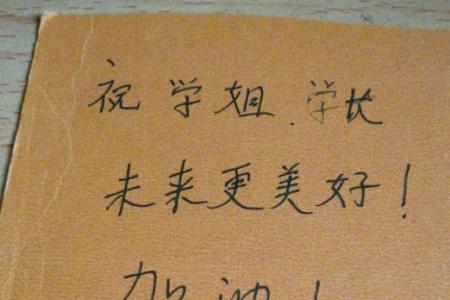 祝学姐.学长
未来更美好!
加油!